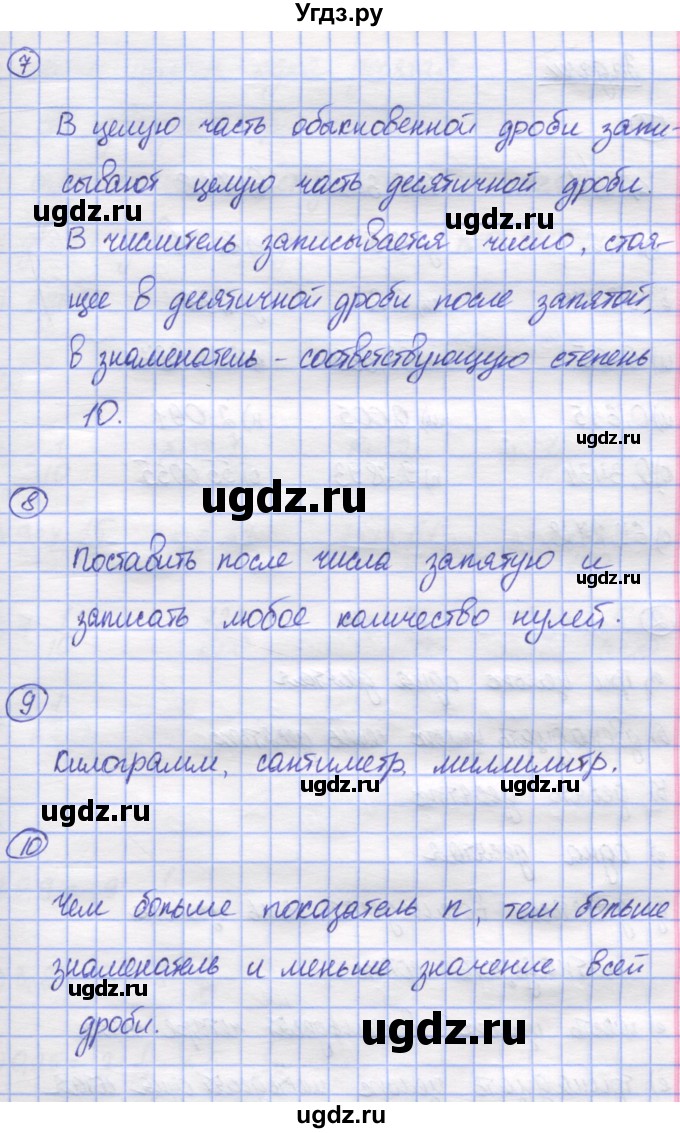 Угдз.ру
7
В целую часть обыкновенной дроби запи-
сывают целую часть десятичной дроби.
ugdz.ru ugdz.ru
В числитель записывается число, стоя-
щее в десятичной дроби после запятой,
ugdz.ru
в знаменатель - соответствующую степень
10.
ugdz.ru
8 ugdz.ru
Поставить после числа запятую и
ugdz.ru
записать любое количество нулей.
9
Килограмм, сантиметр, миллилитр.
ugdz.ru ugdz.ru
ugdz.ru
10
Чем больше показатель n, тем больше
знаменатель и меньше значение всей
ugdz.ru
дроби.
ugdz.ru
ugdz.ru